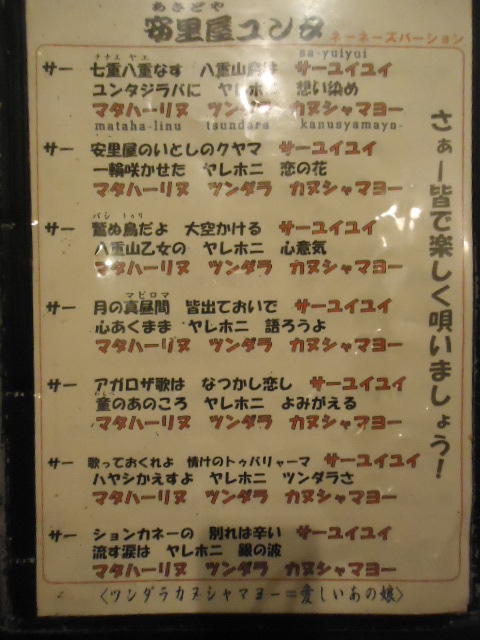 あさどや
安里屋ユンタ
ネーネーズバーション
sa-yuiyui
ナナエ ヤエ
サー 七重八重なす 八重山島は サーユイユイ
ユンタジラバに ヤレホニ 想い染め
マタハーリヌ ツンダラ カヌシャマヨー
mataha-linu tsundara kanusyamayo-
サー 安里屋のいとしのクヤマ サーユイユイ
一輪咲かせた ヤレホニ 恋の花
マタハーリヌ ツンダラ カヌシャマヨー
バシ トゥリ
サー 鷲ぬ鳥だよ 大空かける サーユイユイ
八重山乙女の ヤレホニ 心意気
マタハーリヌ ツンダラ カヌシャマヨー
マピロマ
サー 月の真昼間 皆出ておいで サーユイユイ
心あくまま ヤレホニ 語ろうよ
マタハーリヌ ツンダラ カヌシャマヨー
サー アガロザ歌は なつかし恋し サーユイユイ
童のあのころ ヤレホニ よみがえる
マタハーリヌ ツンダラ カヌシャマヨー
サー 歌っておくれよ 情けのトゥバリャーマ サーユイユイ
ハヤシかえすよ ヤレホニ ツンダラさ
マタハーリヌ ツンダラ カヌシャマヨー
サー ションカネーの 別れは辛い サーユイユイ
流す涙は ヤレホニ 銀の波
マタハーリヌ ツンダラ カヌシャマヨー
〈ツンダラカヌシャマヨー＝愛しいあの娘〉
さぁー皆で楽しく唄いましょう！